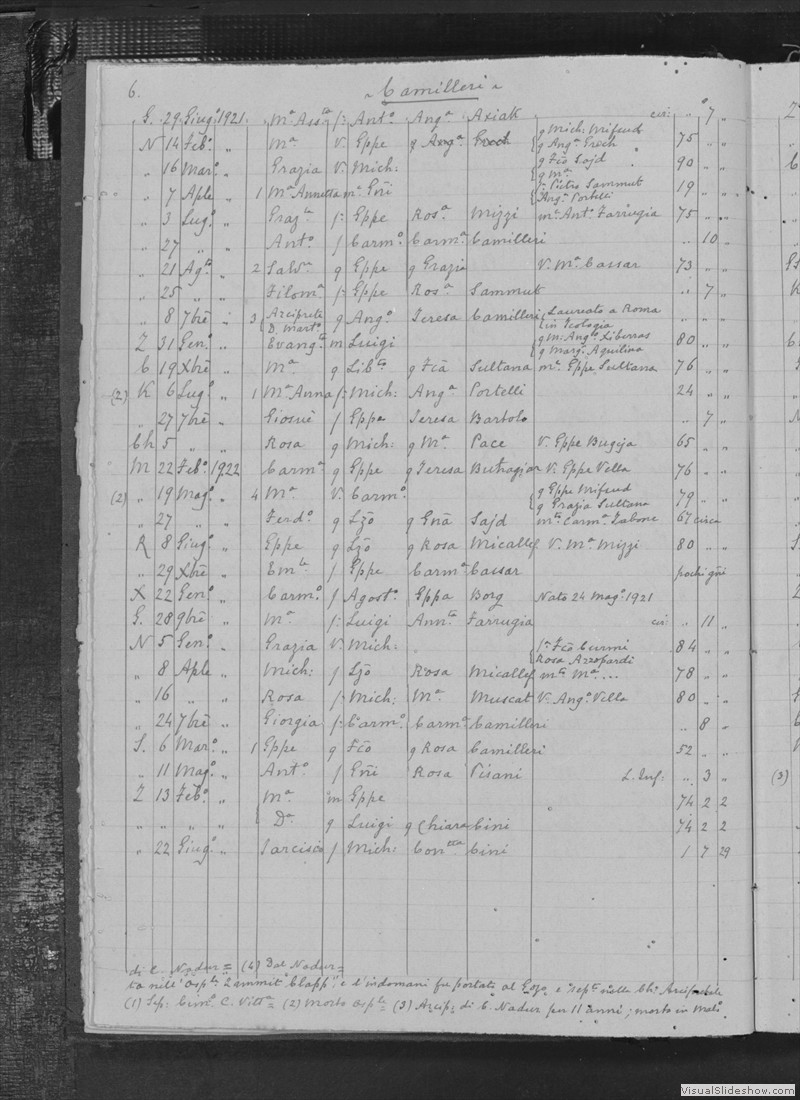 6.
" Camilleri "
G. 29 Giugº 1921. Mª Assta f: Antº Angª Axiak cir: " 7 "
N 14 Febº " Mª V. Eppe g Angª Grech { g Mich: Mifsud g Angª Grech 75 " "
" 16 Marº " Grazia V. Mich: { g Fcõ Sajd g Mª 90 " "
" 7 Aple " 1 Mª Annetta m. Gñi { f: Pietro Sammut Angª Portelli 19 " "
" 3 Lugº " Grazta f: Eppe Rosª Mizzi mª Antº Farrugia 75 " "
" 27 " " Antº f Carmº Carmª Camilleri " 10 "
" 21 Agto " 2 Salvª g Eppe g Grazia V. Mª Cassar 73 " "
" 25 " " Filomª f: Eppe Rosª Sammut " 7 "
" 8 7bre " 3 { Arciprete D. Martº g Angº Teresa Camilleri { Laureato a Roma in Teologia
Z 31 Genº " Evangta m Luigi { g M: Angº Xiberras g Margª Agulina 80 " "
C 19 Xbre " Mª g Libto g Fcã Sultana mª Eppe Sultana 76 " "
(2) K 6 Lugº " 1 Mª Anna f: Mich: Angª Portelli 24 " "
" 27 7bre " Giosuè f Eppe Teresa Bartolo " 7 "
Ch 5 " " Rosa g Mich: g Mª Pace V. Eppe Bugeja 65 " "
M 22 Febº 1922 Carmª g Eppe g Teresa Buttagiar V. Eppe Vella 76 " "
(2) " 19 Magº " 4 Mª V. Carmº { g Eppe Mifsud g Grazia Sultana 79 " "
" 27 " " Ferdº g Lzõ g Gñã Sajd mto Carmª Tabone 67 circa
R 8 Giugº " Eppe g Lzõ g Rosa Micallef V. Mª Mizzi 80 " "
" 29 Xbre " Emle f Eppe Carmª Cassar pochi gñi
X 22 Genº " Carmº f Agostº Eppa Borg Nato 24 magº 1921
G. 28 9bre " Mª f: Luigi Annta Farrugia cir: " 11 "
N 5 Genº " Grazia V. Mich: { f: Fcõ Curmi Rosa Azzopardi 84 " "
" 8 Aple " Mich: f Lzõ Rosa Micallef mto Mª ... 78 " "
" 16 " " Rosa f: Mich: Mª Muscat V. Angº Vella 80 " "
" 24 7bre " Giorgia f: Carmº Carmª Camilleri " 8 "
S. 6 Marº " 1 Eppe g Fcõ g Rosa Camilleri 52 " "
" 11 Magº " Antº f Gñi Rosa Pisani L. Inf: " 3 " (3)
Z 13 Febº " { Mª m Eppe 74 2 2
" " " " Dª g Luigi g Chiara Cini 74 2 2
" 22 Giugº " Tarcisio f Mich: Contta Cini 1 7 29
di C. Nadur = (4) Dal Nadur =
to nell' Osple Zammit Clapp, e l'indomani fu portato al Gozo e septo nella Chª Arcipretale
(1) Sep: Cimº C. Vittª = (2) Morto Osple (3) Arcip: di C. Nadur per 11 anni; morto in
VisualSlideshow.com